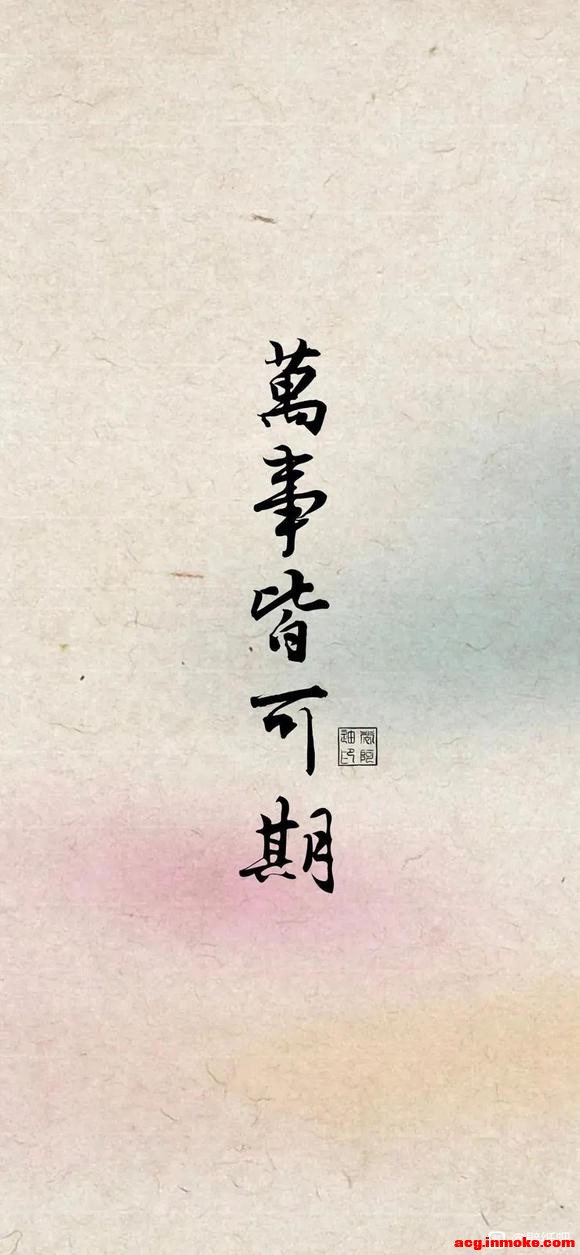 萬事皆可期
acg.inmoke.com